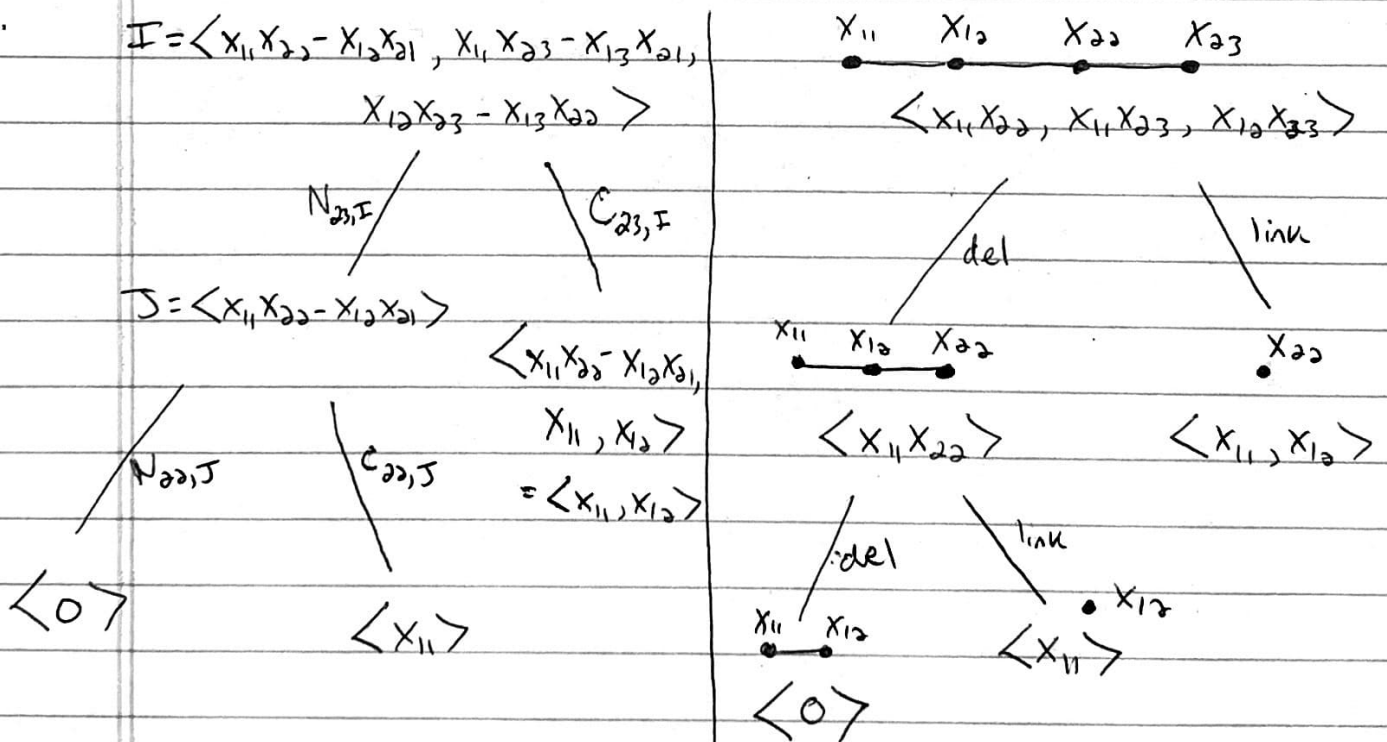 I = <x₁₁x₂₂ - x₁₂x₂₁, x₁₁x₂₃ - x₁₃x₂₁,
x₁₂x₂₃ - x₁₃x₂₂>
N₂₃,I
C₂₃,I
J = <x₁₁x₂₂ - x₁₂x₂₁>
<x₁₁x₂₂ - x₁₂x₂₁,
x₁₁, x₁₂>
= <x₁₁, x₁₂>
N₂₂,J
C₂₂,J
<0>
<x₁₁>
x₁₁ x₁₂ x₂₂ x₂₃
<x₁₁x₂₂, x₁₁x₂₃, x₁₂x₂₃>
del
link
x₁₁ x₁₂ x₂₂
x₂₂
<x₁₁x₂₂>
<x₁₁, x₁₂>
del
link
x₁₁ x₁₂
x₁₂
<x₁₁>
<0>